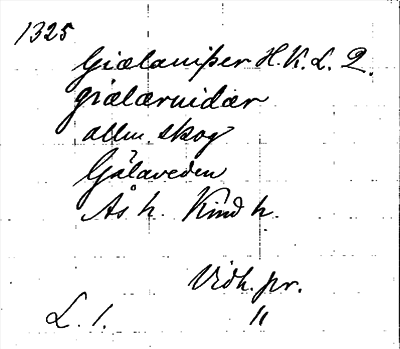 1325
Giælaniþer H.K.L. 2.
giælærnidær
allm skog
Gälaveden
Ås h. Kind h.
Vidh. pr.
L. 1. "